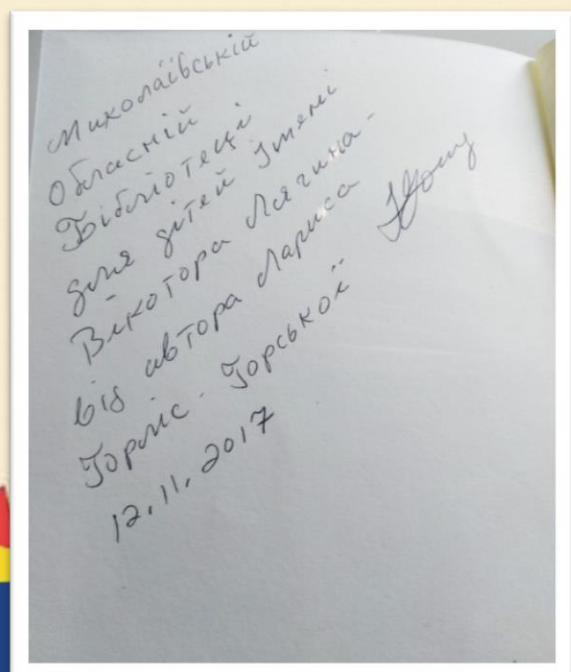 Миколаївській
Обласній
Бібліотеці
для дітей імені
Вікотора Лягина-
від автора Лариса
Горліс-Горської
12.11.2017